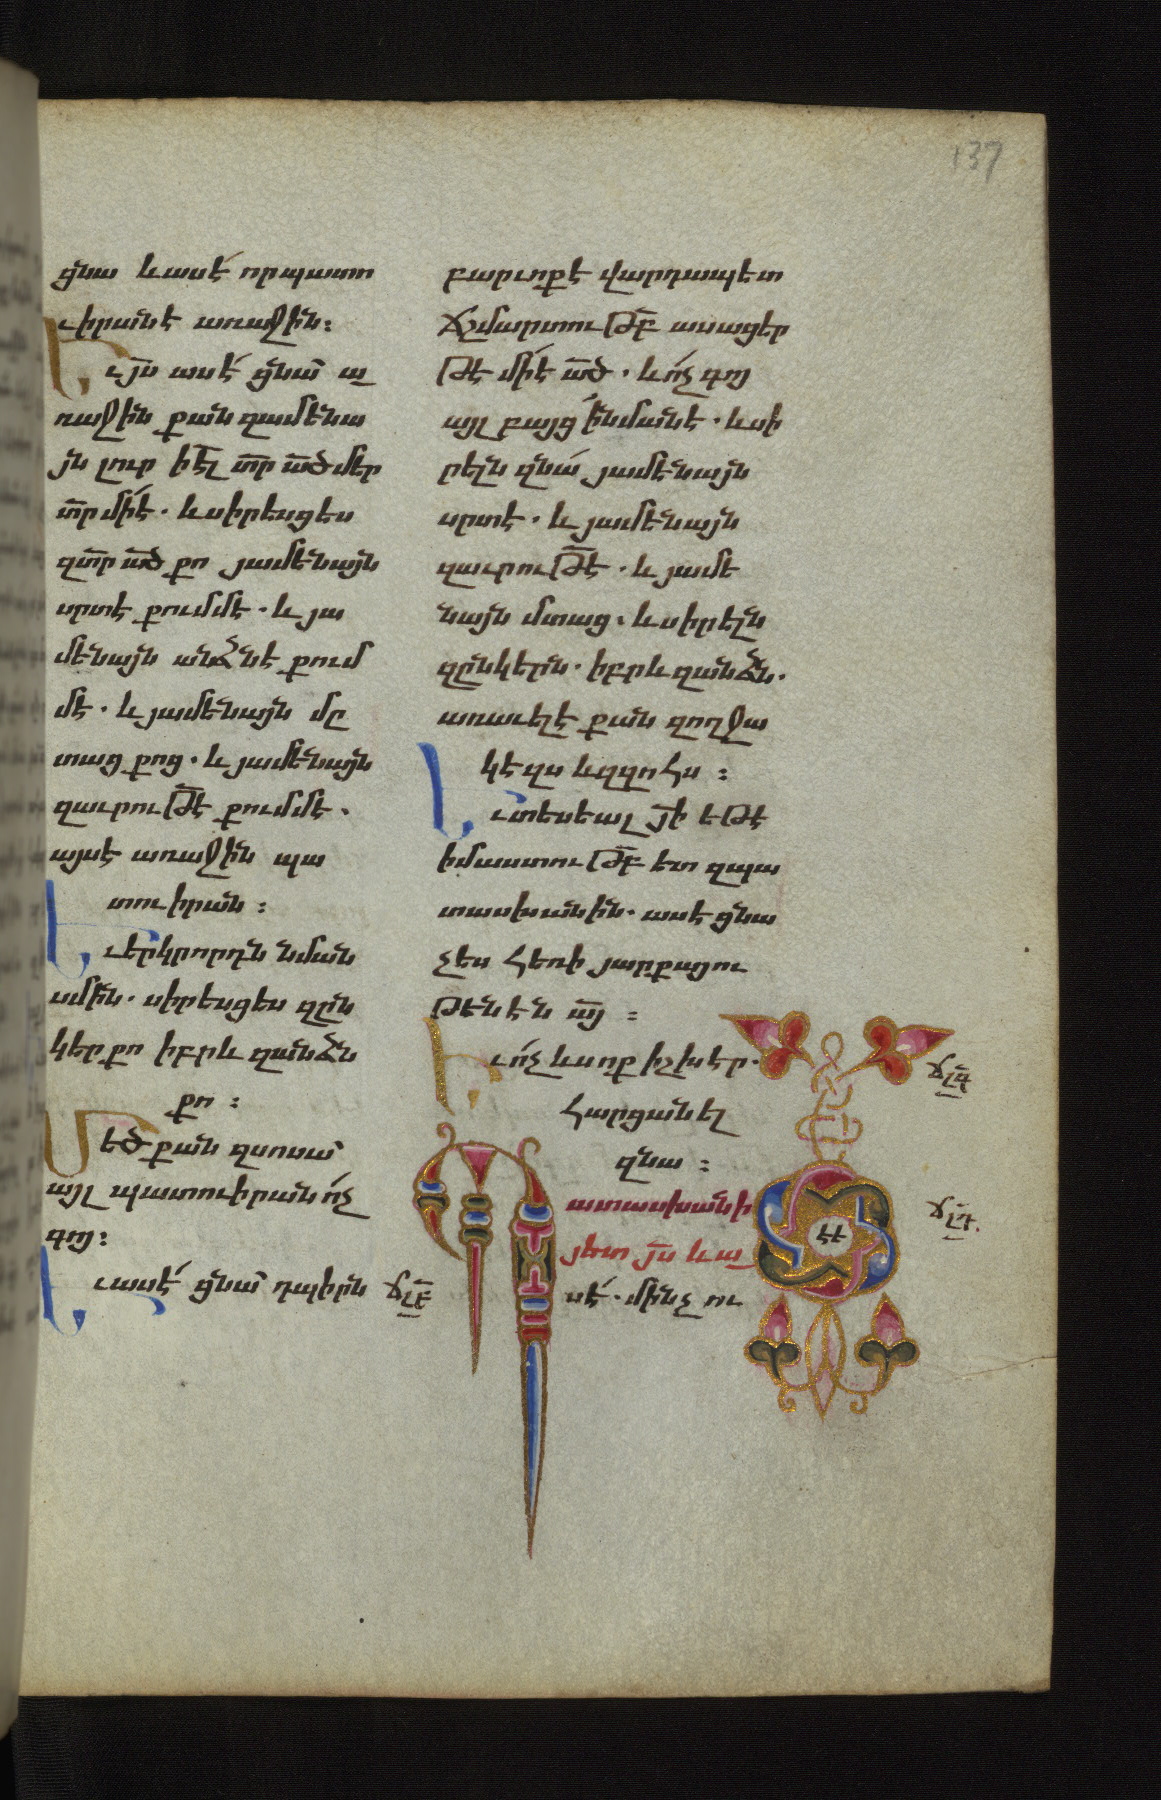 137
ցնա և ասէ՛ որ պատո
ւիրանէ առաջին։
Ե
ւ յ̅ս ասէ՛ ցնա՛ ա
ռաջին քան զամենա
յն լուր ի̅է̅լ տ̅ր ա̅ծ մեր
տ̅ր մի՛է· և սիրեսցես
զտ̅ր ա̅ծ քո յամենայն
սրտէ քումմէ· և յա
մենայն անձնէ քում
մէ· և յամենայն մը
տաց քոց· և յամենայն
զաւրու թ̅է քումմէ·
այսէ առաջին պա
տուիրան։
Ե
ւ երկրորդն նման
սմին· սիրեսցես զըն
կեր քո իբրև զանձն
քո։
Մ
եծ քան զսոսա՛
այլ պատուիրան ո՛չ
գոյ։
Ե
ւ ասէ՛ ցնա՛ դպիրն
ճլբ
բարւոքէ վարդապետ
ճշմարտու թ̅բ ասացեր
թէ մի՛է ա̅ծ· և ո՛չ գոյ
այլ բայց ի՛նմանէ· և սի
րելն զնա՛ յամենայն
սրտէ· և յամենայն
զաւրու թ̅է· և յամե
նայն մտաց· և սիրելն
զընկերն· իբրև զանձն·
առաւելէ քան զողջա
կէզս և զզոհս։
Ե
ւ տեսեալ յ̅ի եթէ
իմաստու թ̅բ ետ զպա
տասխանին· ասէ ցնա
չես հեռի յարքայու
թենէն ա̅յ։
Ե
ւ ո՛չ ևս ոք իշխէր·
հարցանել
զնա։
ճլգ
Պ
ատասխանի
յետ յ̅ս և ա
սէ՛· մինչ ու
ճլդ·